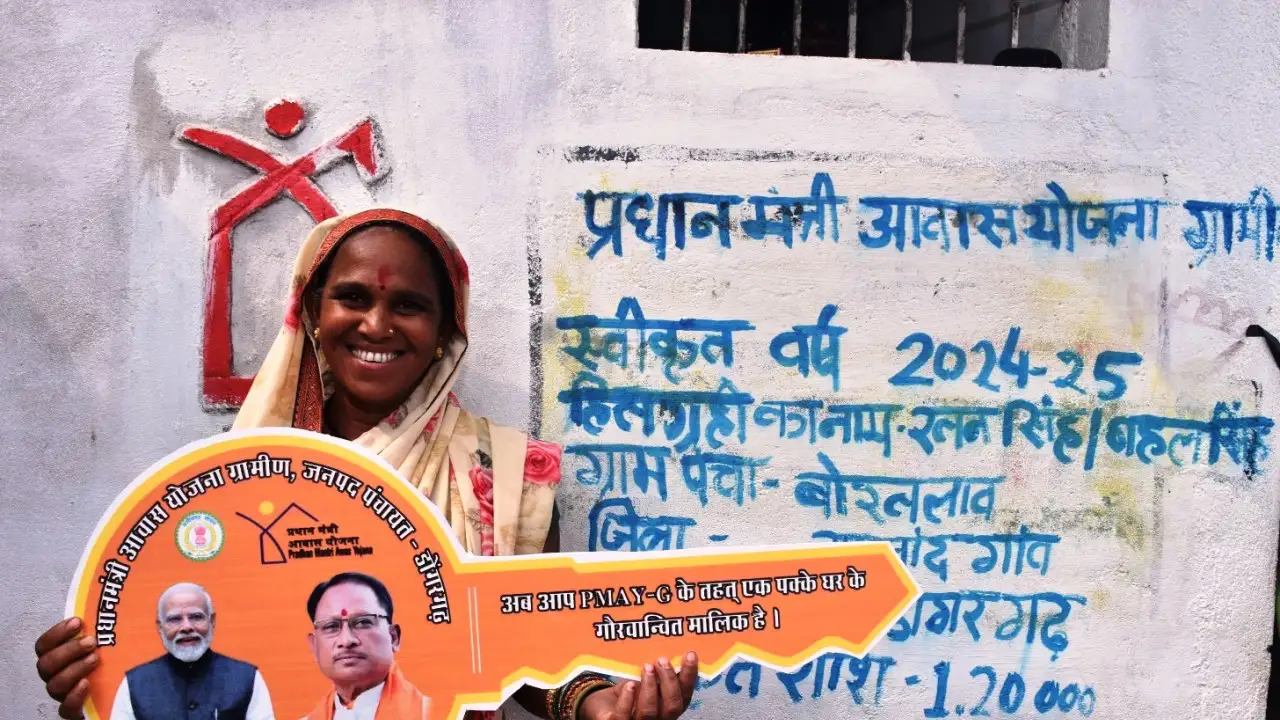 प्रधान मंत्री आवास योजना ग्रामी
स्वीकृत वर्ष 2024-25
हितग्राही का नाम-रतन सिंह/
ग्राम पंचा-
जिला - गांव
गरगढ़
राशि -1.20000
प्रधानमंत्री आवास योजना ग्रामीण, जनपद पंचायत - डोंगरगढ़
प्रधान मंत्री
आवास योजना
Pradhan Mantri Awas Yojana
अब आप PMAY-G के तहत् एक पक्के घर के
गौरवान्वित मालिक है ।